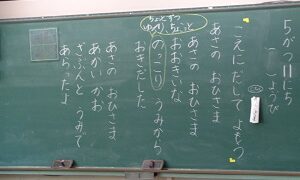 5がつ11にち
こえに だして よもう
あさの おひさま
あさの おひさま
おおきいな
のっこり うみから
おきだした
あさの おひさま
あかい かお
ざぶんと うみで
あらったよ
ちょっと